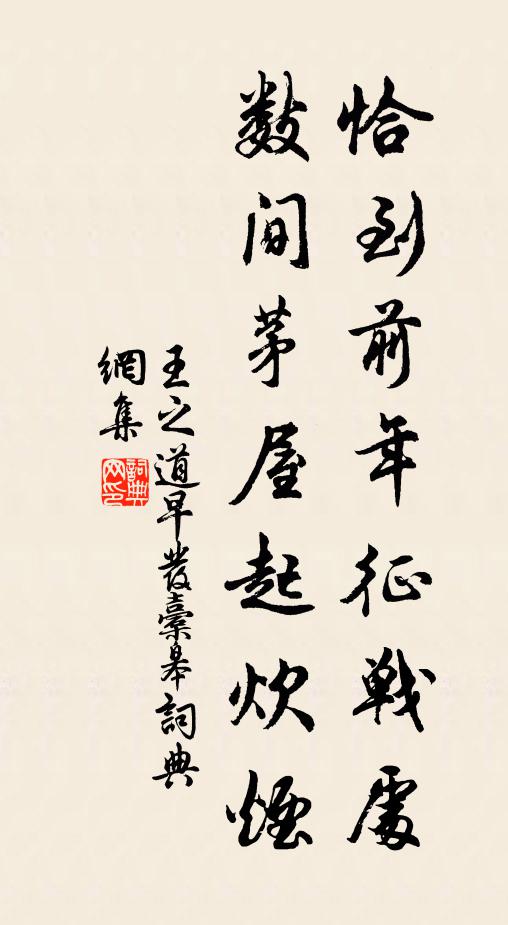 恰到前年征戰處
数间茅屋起炊煙
王之道早發橐皋詞典
網集
詞典
网印